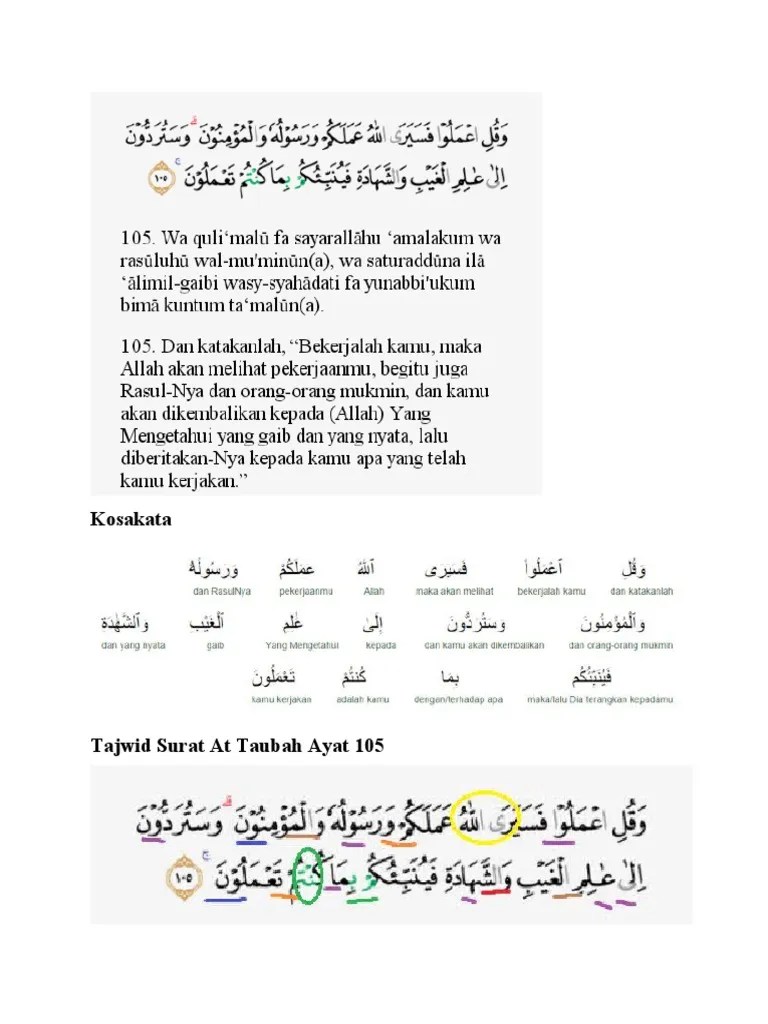 وَقُلِ اعْمَلُوْا فَسَيَرَى اللّٰهُ عَمَلَكُمْ وَرَسُوْلُهٗ وَالْمُؤْمِنُوْنَۗ وَسَتُرَدُّوْنَ
اِلٰى عٰلِمِ الْغَيْبِ وَالشَّهَادَةِ فَيُنَبِّئُكُمْ بِمَا كُنْتُمْ تَعْمَلُوْنَۚ ١٠٥
105. Wa quli‘malū fa sayarallāhu ‘amalakum wa
rasūluhū wal-mu'minūn(a), wa saturaddūna ilā
‘ālimil-gaibi wasy-syahādati fa yunabbi'ukum
bimā kuntum ta‘malūn(a).
105. Dan katakanlah, “Bekerjalah kamu, maka
Allah akan melihat pekerjaanmu, begitu juga
Rasul-Nya dan orang-orang mukmin, dan kamu
akan dikembalikan kepada (Allah) Yang
Mengetahui yang gaib dan yang nyata, lalu
diberitakan-Nya kepada kamu apa yang telah
kamu kerjakan.”
Kosakata
وَقُلِ ٱعْمَلُوا۟ فَسَيَرَى ٱللَّهُ عَمَلَكُمْ وَرَسُولُهُۥ
dan katakanlah bekerjalah kamu maka akan melihat Allah pekerjaanmu dan RasulNya
وَٱلْمُؤْمِنُونَ وَسَتُرَدُّونَ إِلَىٰ عَٰلِمِ ٱلْغَيْبِ وَٱلشَّهَٰدَةِ
dan orang-orang mukmin dan kamu akan dikembalikan kepada Yang Mengetahui gaib dan yang nyata
فَيُنَبِّئُكُم بِمَا كُنتُمْ تَعْمَلُونَ
maka/lalu Dia terangkan kepadamu dengan/terhadap apa adalah kamu kamu kerjakan
Tajwid Surat At Taubah Ayat 105
وَقُلِ اعْمَلُوْا فَسَيَرَى اللّٰهُ عَمَلَكُمْ وَرَسُوْلُهٗ وَالْمُؤْمِنُوْنَۗ وَسَتُرَدُّوْنَ
اِلٰى عٰلِمِ الْغَيْبِ وَالشَّهَادَةِ فَيُنَبِّئُكُمْ بِمَا كُنْتُمْ تَعْمَلُوْنَۚ ١٠٥